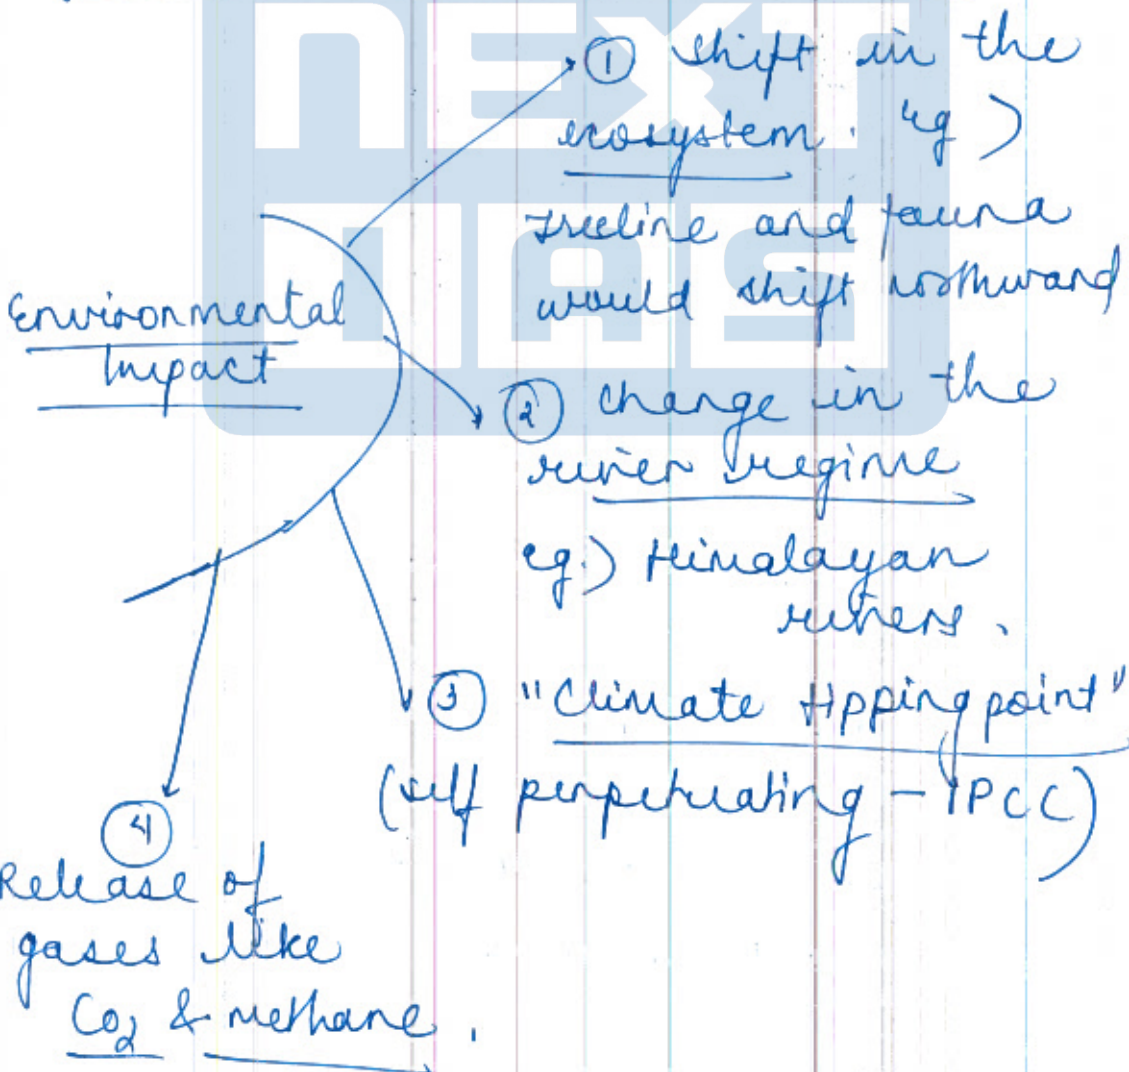 NEXT
IAS
① Shift in the
ecosystem. eg)
Treeline and fauna
would shift northward
Environmental
Impact
② Change in the
river regime
eg.) Himalayan
rivers.
③ "Climate tipping point"
(self perpetuating - IPCC)
④
Release of
gases like
CO2 & methane.